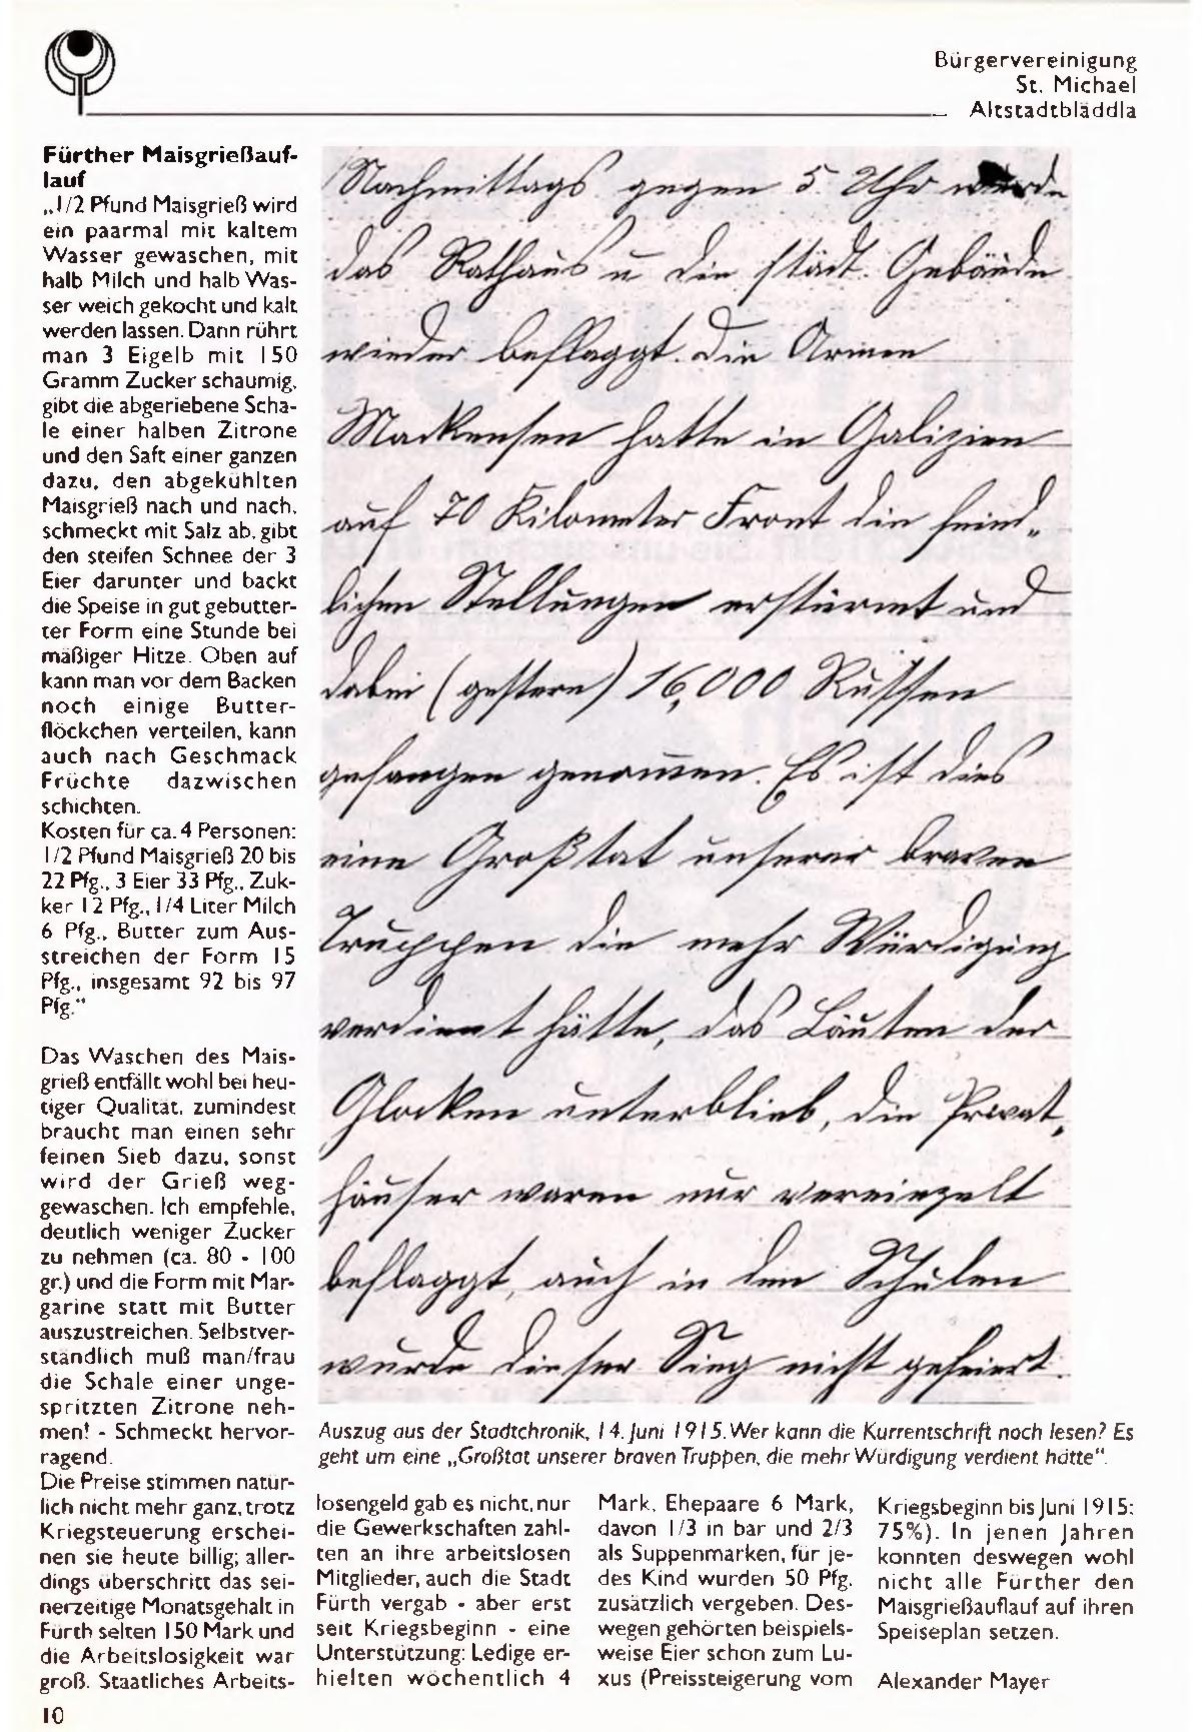 Bürgervereinigung
St. Michael
Altstadtbläddla
Fürther Maisgrießauf-
lauf
„1/2 Pfund Maisgrieß wird
ein paarmal mit kaltem
Wasser gewaschen, mit
halb Milch und halb Was-
ser weich gekocht und kalt
werden lassen. Dann rührt
man 3 Eigelb mit 150
Gramm Zucker schaumig,
gibt die abgeriebene Scha-
le einer halben Zitrone
und den Saft einer ganzen
dazu, den abgekühlten
Maisgrieß nach und nach,
schmeckt mit Salz ab, gibt
den steifen Schnee der 3
Eier darunter und backt
die Speise in gut gebutter-
ter Form eine Stunde bei
mäßiger Hitze. Oben auf
kann man vor dem Backen
noch einige Butter-
flöckchen verteilen, kann
auch nach Geschmack
Früchte dazwischen
schichten.
Kosten für ca. 4 Personen:
1/2 Pfund Maisgrieß 20 bis
22 Pfg., 3 Eier 33 Pfg., Zuk-
ker 12 Pfg., 1/4 Liter Milch
6 Pfg., Butter zum Aus-
streichen der Form 15
Pfg., insgesamt 92 bis 97
Pfg."
Das Waschen des Mais-
grieß entfällt wohl bei heu-
tiger Qualität, zumindest
braucht man einen sehr
feinen Sieb dazu, sonst
wird der Grieß weg-
gewaschen. Ich empfehle,
deutlich weniger Zucker
zu nehmen (ca. 80 - 100
gr.) und die Form mit Mar-
garine statt mit Butter
auszustreichen. Selbstver-
ständlich muß man/frau
die Schale einer unge-
spritzten Zitrone neh-
men! - Schmeckt hervor-
ragend.
Die Preise stimmen natür-
lich nicht mehr ganz, trotz
Kriegsteuerung erschei-
nen sie heute billig; aller-
dings überschritt das sei-
nerzeitige Monatsgehalt in
Fürth selten 150 Mark und
die Arbeitslosigkeit war
groß. Staatliches Arbeits-
Nachmittags gegen 5. Uhr wurde
das Rathaus u die städt. Gebäude
wieder beflaggt. Die Armee
Mackensen hatte in Galizien
auf 70 Kilometer Front die feind„
lichen Stellungen erstürmt und
dabei (gestern) 16,000 Russen
gefangen genommen. Es ist dies
eine Großtat unserer braven
Truppen die mehr Würdigung
verdient hätte, das Läuten der
Glocken unterblieb, die Privat„
häuser waren nur vereinzelt
beflaggt, auch in den Schulen
wurde dieser Sieg nicht gefeiert.
Auszug aus der Stadtchronik, 14. Juni 1915. Wer kann die Kurrentschrift noch lesen? Es
geht um eine „Großtat unserer braven Truppen, die mehr Würdigung verdient hätte".
losengeld gab es nicht, nur
die Gewerkschaften zahl-
ten an ihre arbeitslosen
Mitglieder, auch die Stadt
Fürth vergab - aber erst
seit Kriegsbeginn - eine
Unterstützung: Ledige er-
hielten wöchentlich 4
Mark, Ehepaare 6 Mark,
davon 1/3 in bar und 2/3
als Suppenmarken, für je-
des Kind wurden 50 Pfg.
zusätzlich vergeben. Des-
wegen gehörten beispiels-
weise Eier schon zum Lu-
xus (Preissteigerung vom
Kriegsbeginn bis Juni 1915:
75%). In jenen Jahren
konnten deswegen wohl
nicht alle Fürther den
Maisgrießauflauf auf ihren
Speiseplan setzen.
Alexander Mayer
10